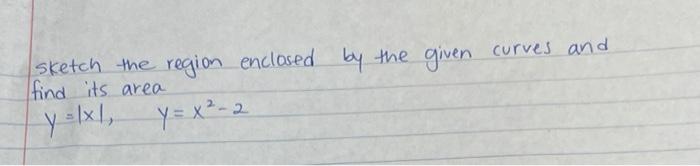 sketch the region enclosed by the given curves and
find its area
y = |x|, y = x² - 2